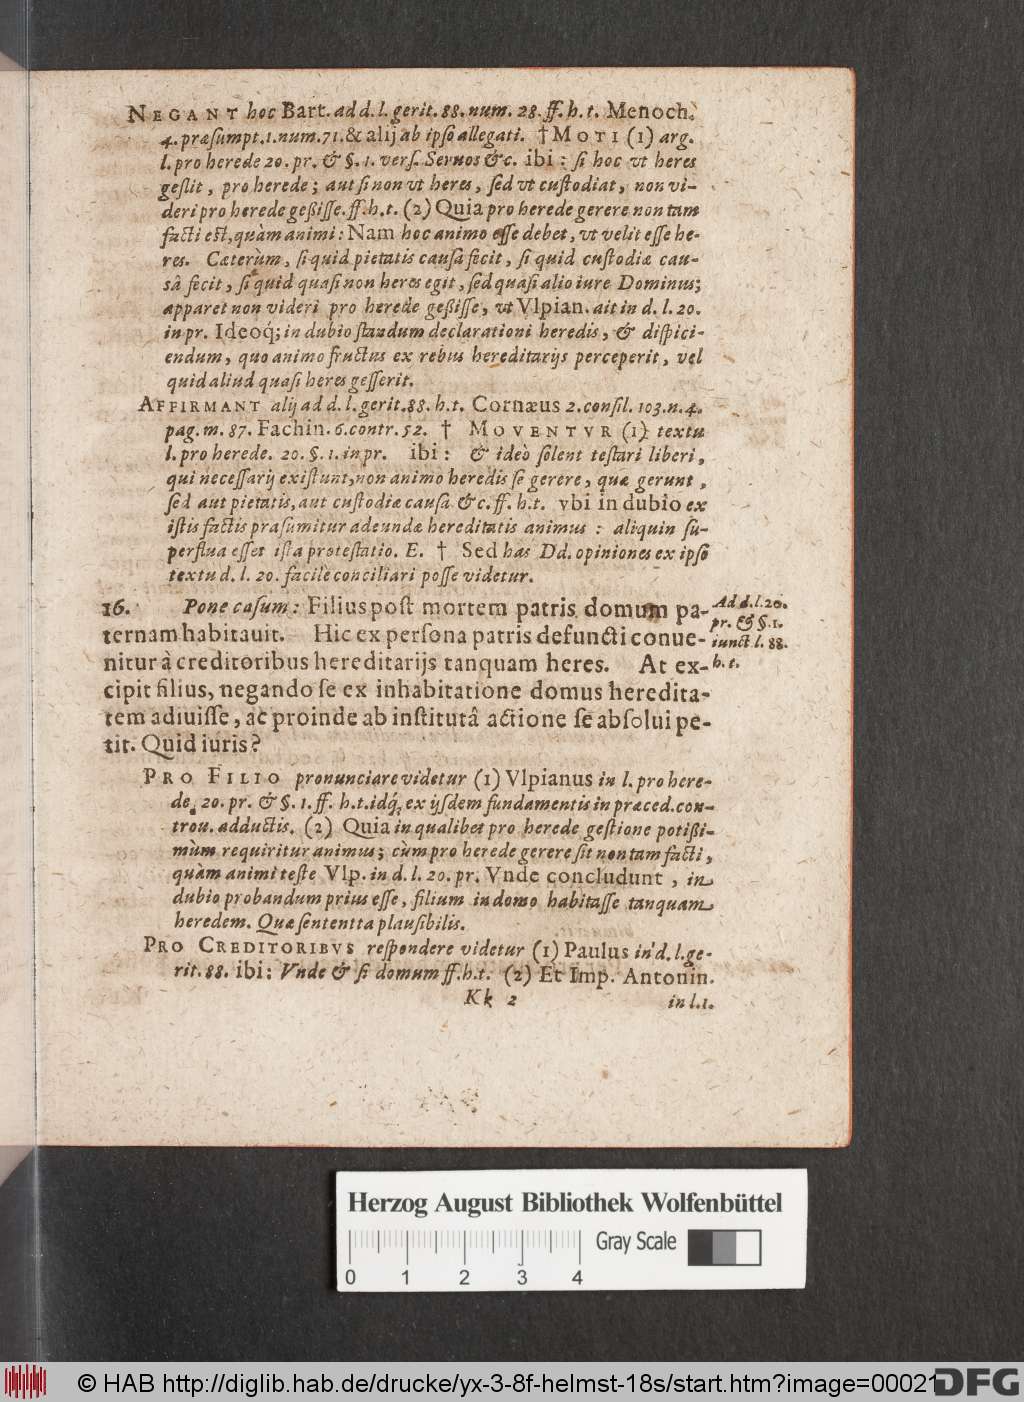 NEGANT hoc Bart. ad d. l. gerit. 88. num. 28. ff. h. t. Menoch.
4. præsumpt. 1. num. 71. & alij ab ipso allegati. † MOTI (1) arg.
l. pro herede 20. pr. & §. 1. vers. Seruos &c. ibi: si hoc vt heres
gessit, pro herede; aut si non vt heres, sed vt custodiat, non vi-
deri pro herede geßisse. ff. h. t. (2) Quia pro herede gerere non tam
facti est, quàm animi: Nam hoc animo esse debet, vt velit esse he-
res. Cæterùm, si quid pietatis causâ fecit, si quid custodiæ cau-
sâ fecit, si quid quasi non heres egit, sed quasi alio iure Dominus;
apparet non videri pro herede geßisse, vt Vlpian. ait in d. l. 20.
in pr. Ideoq; in dubio standum declarationi heredis, & dispici-
endum, quo animo fructus ex rebus hereditarijs perceperit, vel
quid aliud quasi heres gesserit.
AFFIRMANT alij ad d. l. gerit. 88. h. t. Cornæus 2. consil. 103. n. 4.
pag. m. 87. Fachin. 6. contr. 52. † MOVENTVR (1) textu
l. pro herede. 20. §. 1. in pr. ibi: & ideò solent testari liberi,
qui necessarij existunt, non animo heredis se gerere, quæ gerunt,
sed aut pietatis, aut custodiæ causa &c. ff. h. t. vbi in dubio ex
istis factis præsumitur adeundæ hereditatis animus: aliquin su-
perflua esset ista protestatio. E. † Sed has Dd. opiniones ex ipso
textu d. l. 20. facile conciliari posse videtur.
16. Pone casum: Filius post mortem patris domum pa-
ternam habitauit. Hic ex persona patris defuncti conue-
nitur à creditoribus hereditarijs tanquam heres. At ex-
cipit filius, negando se ex inhabitatione domus heredita-
tem adiuisse, ac proinde ab institutâ actione se absolui pe-
tit. Quid iuris?
Ad d. l. 20.
pr. & §. 1.
iunct l. 88.
h. t.
PRO FILIO pronunciare videtur (1) Vlpianus in l. pro here-
de. 20. pr. & §. 1. ff. h. t. idq́; ex ijsdem fundamentis in præced. con-
trou. adductis. (2) Quia in qualibet pro herede gestione potißi-
mùm requiritur animus; cùm pro herede gerere sit non tam facti,
quàm animi teste Vlp. in d. l. 20. pr. Vnde concludunt, in
dubio probandum prius esse, filium in domo habitasse tanquam
heredem. Quæ sententta plausibilis.
PRO CREDITORIBVS respondere videtur (1) Paulus in d. l. ge-
rit. 88. ibi: Vnde & si domum ff. h. t. (2) Et Imp. Antonin.
Kk 2
in l. 1.
Herzog August Bibliothek Wolfenbüttel
Gray Scale
0 1 2 3 4
© HAB http://diglib.hab.de/drucke/yx-3-8f-helmst-18s/start.htm?image=00021
DFG